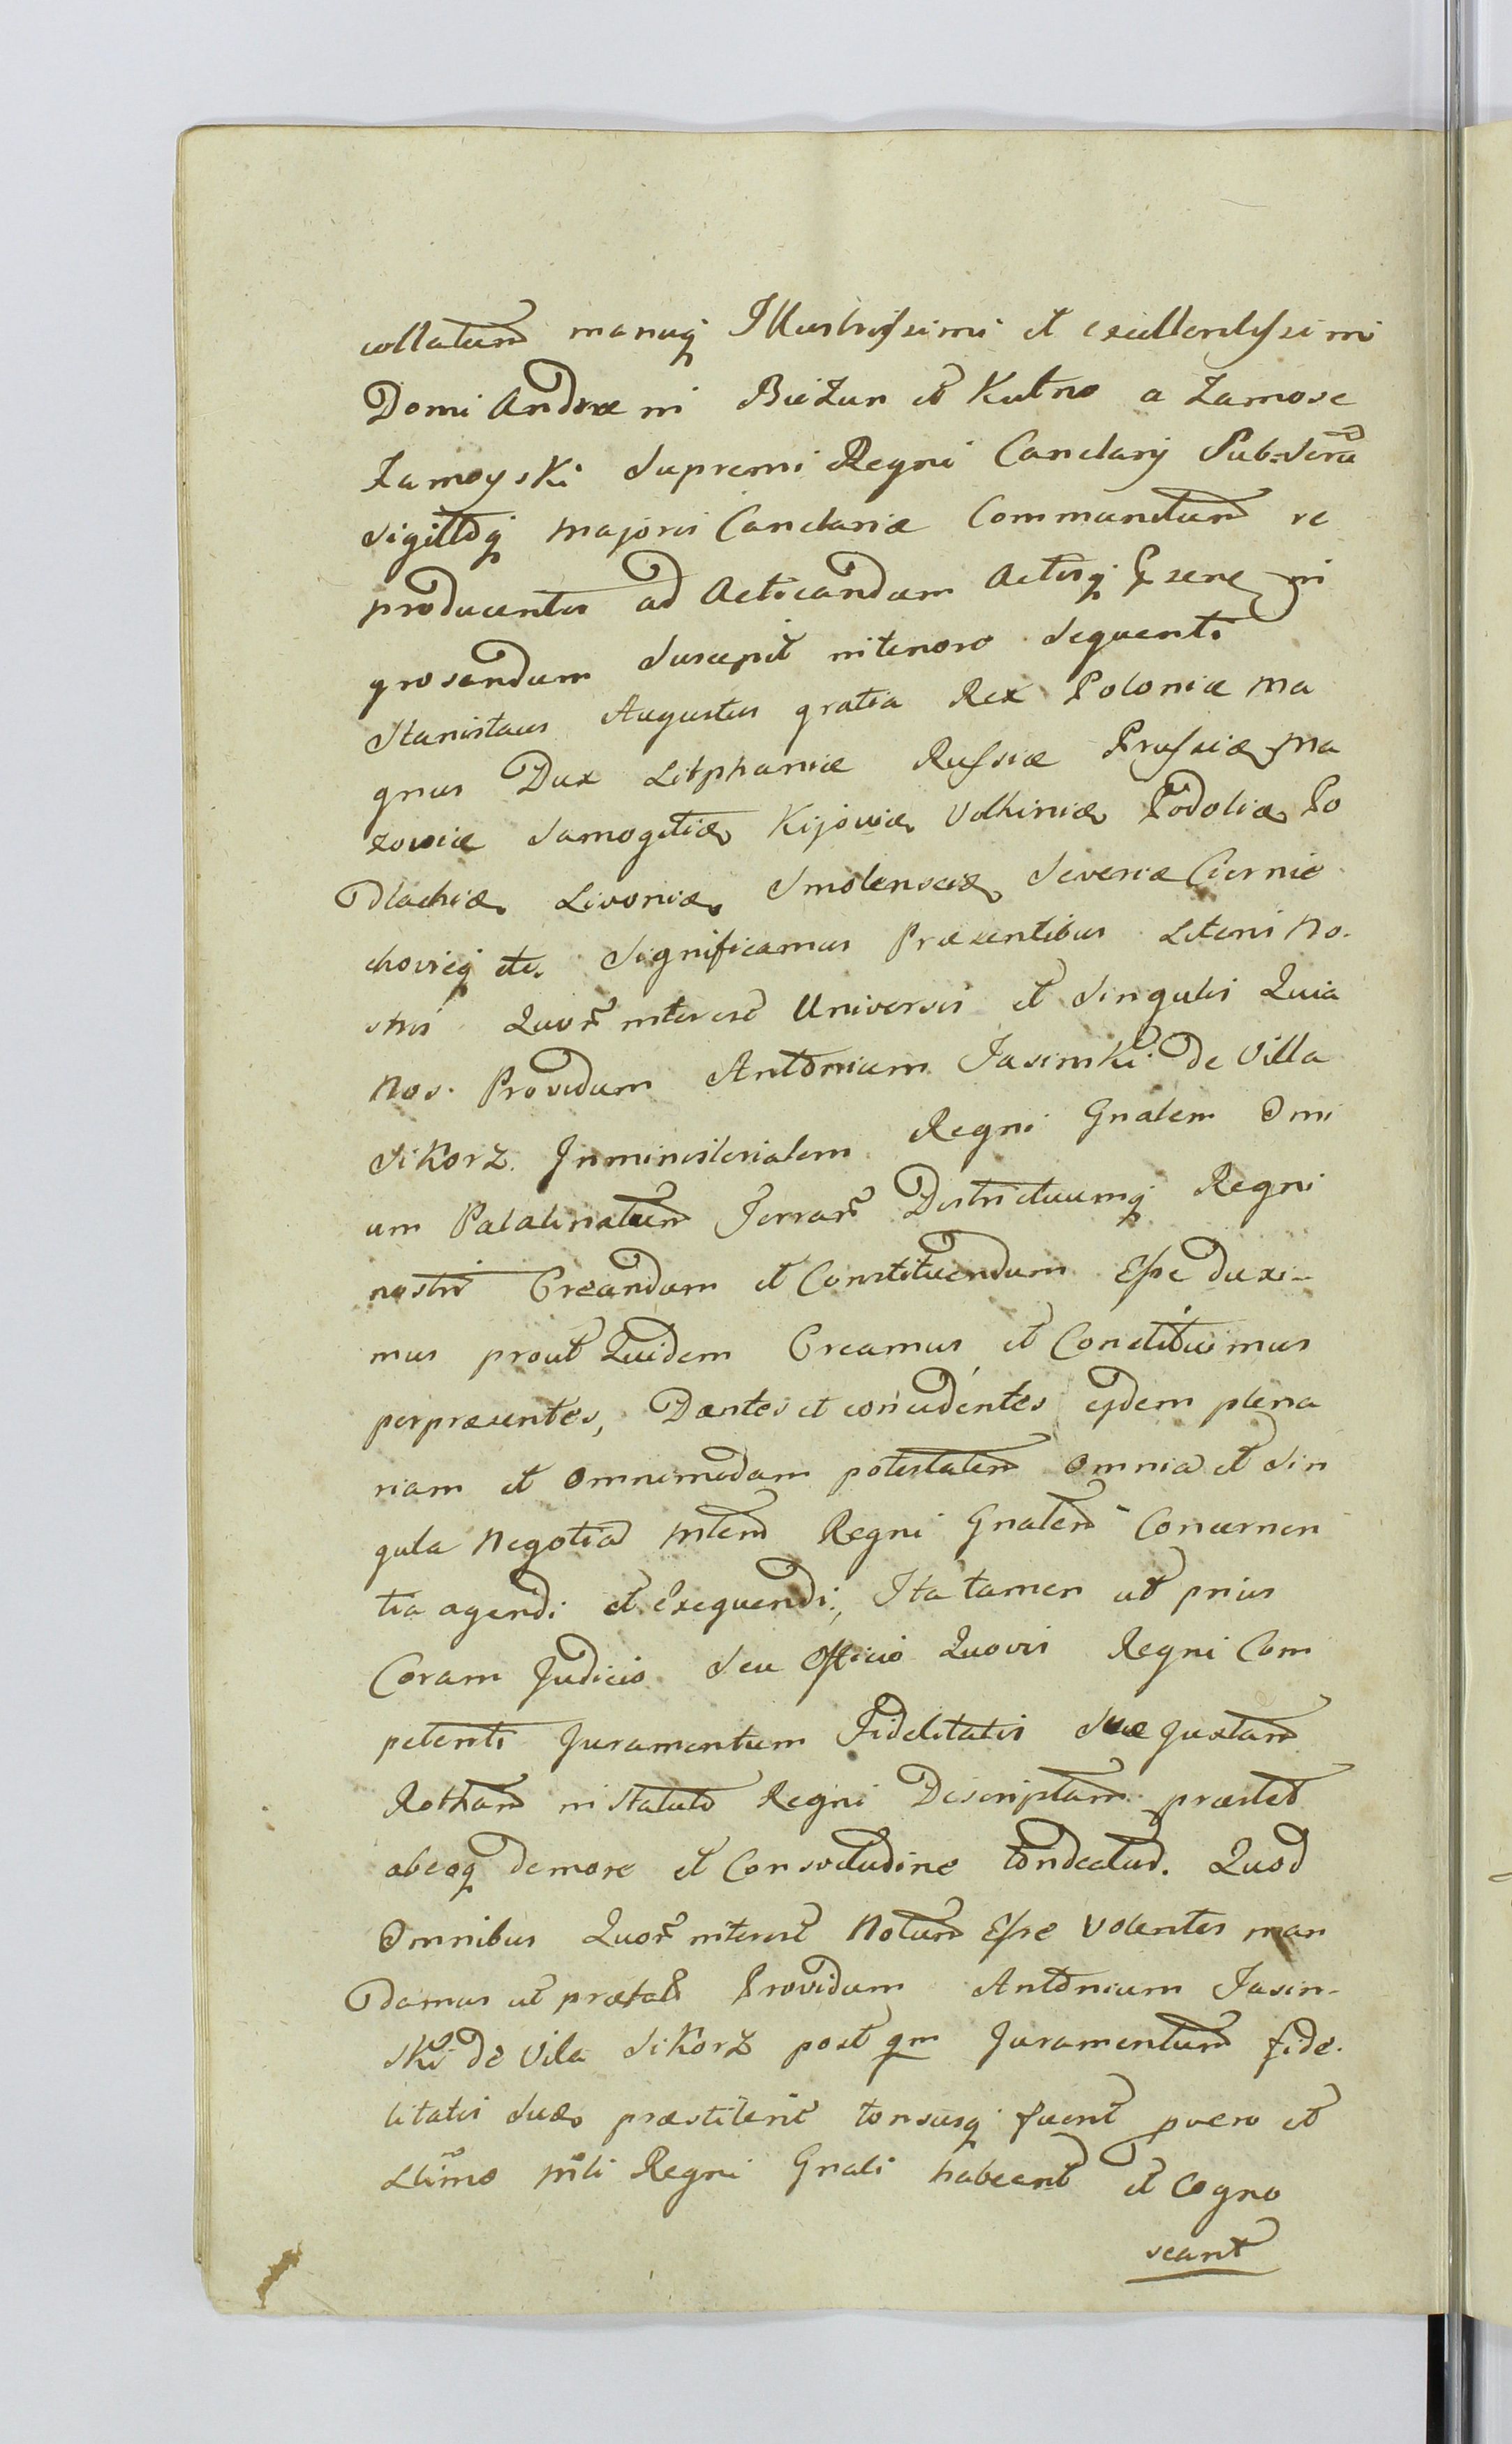 collatum manuq Illustrissimi et excellentissimi
Domi Andreæ in Bieżun et Kutno a Zamosc
Zamoyski Supremi Regni Cancelarij Sub
Sigilloq majoris Cancelariæ Communitum re
producentis ad Acticandum Actisq Præsene in
grosandum Suscepit in tenore Sequenti
Stanislaus Augustus gratia Rex Poloniæ Ma
gnus Dux Litphaniæ Russiæ Prussiæ Ma
zowiæ Samogitiæ Kijowiæ Volhiniæ Podoliæ Po
Dlachiæ Livoniæ Smolensciæ Severiæ Czernie
choviæq etc. Significamus Præsentibus Literis No.
stris Quor interest Universis et Singulis Quia
Nos. Providum Antonium Jasinski de Villa
Sikorz. In ministerialem Regni Gnalem Omi
um Palatinatum Terrar Districtuumq Regni
nostri Creandum et Constituendum Esse duxi-
mus prout Quidem Creamus et Constituimus
per præsentes, Dantes et concedentes ejdem plena
riam et omnimodam potestatem Omnia et Sin
gula Negotia Mlem Regni Gnalem Concernen
tia agendi et Exequendi, Ita tamen ut prius
Coram Judicio Seu Officio Quovis Regni Com
petenti Juramentum Fidelitatis Suæ Juxtam
Rotham in Statuto Regni Descriptam præstet
ab eoq de more et Consvetudine tondeatur. Quod
Omnibus Quor interest Notum Esse Volentes man
Damus ut præfat Providum Antonium Jasin-
ski de Vila Sikorz post qm Juramentum fide.
litatis Suæ præstiterit tonsusq fuerit pvero et
Ltimo Mli Regni Gnali habeant et Cogno
scant